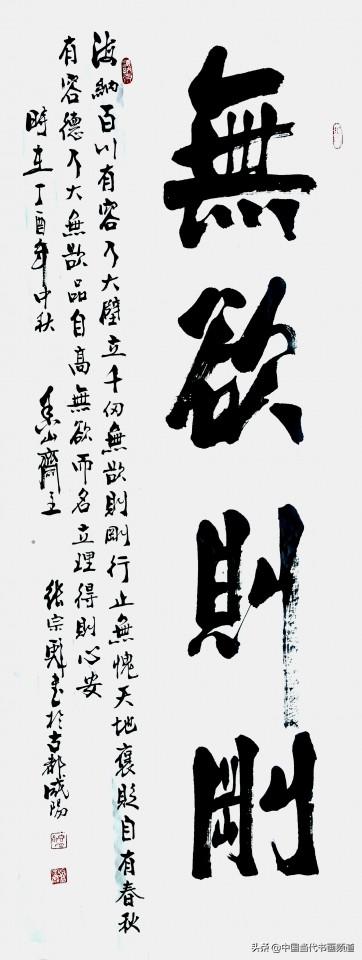 無欲則剛
海納百川有容乃大壁立千仞無欲則剛行止無愧天地褒貶自有春秋
有容德乃大無欲品自高無欲而名立理得則心安
時在丁酉年中秋
山齋主
張宗 書於古都咸陽
头条 @中国当代书画频道